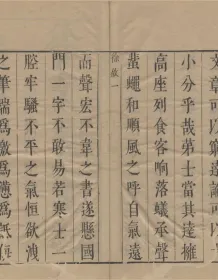 文章可以
小分乎哉第士當其遠擁
高座列食客响落蟻承聲
一
蠅和順風之呼自氣遠
而聲宏不韋之書遂懸國
門一字不敢易若寒士二
腔牢騷不平之氣恒欲洩
之筆端爲激爲